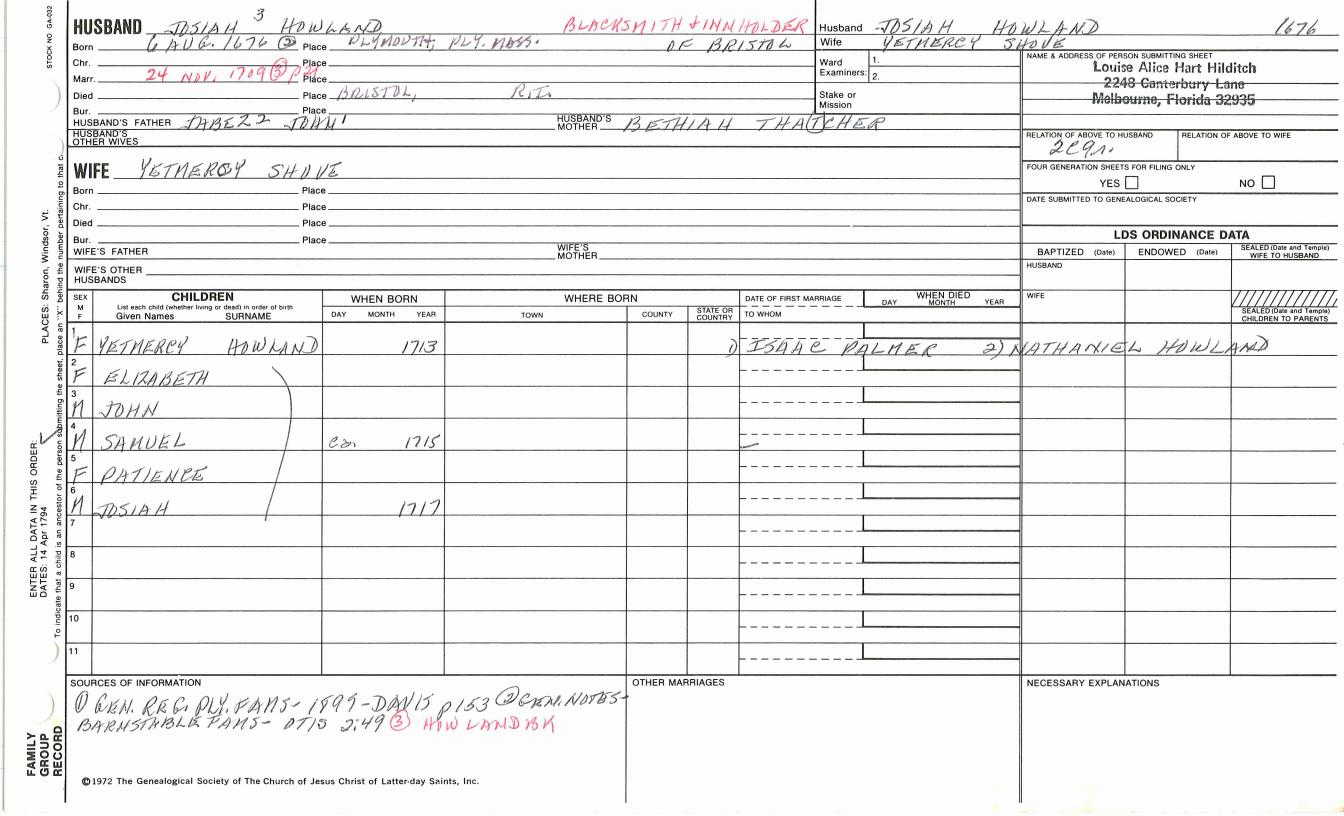 STOCK NO. GA-032
3
HUSBAND JOSIAH HOWLAND BLACKSMITH & INNHOLDER
Born 6 AUG. 1676 ② Place PLYMOUTH, PLY. MASS. OF BRISTOL
Chr. Place
Marr. 24 NOV. 1709 ③ Place
Died Place BRISTOL, R.I.
Bur. Place
HUSBAND'S FATHER JABEZ2 JOHN1 HUSBAND'S MOTHER BETHIAH THATCHER
HUSBAND'S OTHER WIVES
Husband JOSIAH HOWLAND 1676
Wife YETMERCY SHOVE
Ward Examiners: 1.
2.
Stake or Mission
NAME & ADDRESS OF PERSON SUBMITTING SHEET
Louise Alice Hart Hilditch
2248 Canterbury Lane
Melbourne, Florida 32935
RELATION OF ABOVE TO HUSBAND RELATION OF ABOVE TO WIFE
FOUR GENERATION SHEETS FOR FILING ONLY
YES NO
DATE SUBMITTED TO GENEALOGICAL SOCIETY
WIFE YETMERCY SHOVE
Born Place
Chr. Place
Died Place
Bur. Place
WIFE'S FATHER WIFE'S MOTHER
WIFE'S OTHER HUSBANDS
LDS ORDINANCE DATA
BAPTIZED (Date) ENDOWED (Date) SEALED (Date and Temple) WIFE TO HUSBAND
HUSBAND
WIFE
SEALED (Date and Temple) CHILDREN TO PARENTS
SEX M F CHILDREN WHEN BORN WHERE BORN DATE OF FIRST MARRIAGE WHEN DIED
List each child (whether living or dead) in order of birth
Given Names SURNAME DAY MONTH YEAR TOWN COUNTY STATE OR COUNTRY TO WHOM DAY MONTH YEAR
1 F YETMERCY HOWLAND 1713 1) ISAAC PALMER 2) NATHANIEL HOWLAND
2 F ELIZABETH
3 M JOHN
4 M SAMUEL ca. 1715
5 F PATIENCE
6 M JOSIAH 1717
7
8
9
10
11
SOURCES OF INFORMATION OTHER MARRIAGES NECESSARY EXPLANATIONS
① GEN. REG. PLY. FAMS- 1899-DAVIS p153 ② GEN. NOTES-
BARNSTABLE FAMS- OTIS 2:49 ③ HOWLAND BK
©1972 The Genealogical Society of The Church of Jesus Christ of Latter-day Saints, Inc.
FAMILY GROUP RECORD
ENTER ALL DATA IN THIS ORDER:
DATES: 14 Apr 1794
PLACES: Sharon, Windsor, Vt.
To indicate that a child is an ancestor of the person submitting the sheet, place an "X" behind the number pertaining to that c